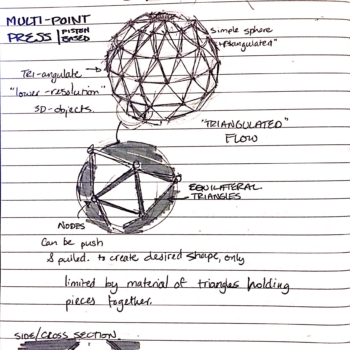 MULTI-POINT
PRESS | PISTON BASED
Simple sphere
"triangulated"
Tri-angulate
"lower-resolution"
3D-objects.
"TRIANGULATED"
FLOW
EQUILATERAL
TRIANGLES
NODES
Can be push
& pulled. to create desired shape, only
limited by material of triangles holding
pieces together.
SIDE/CROSS SECTION.